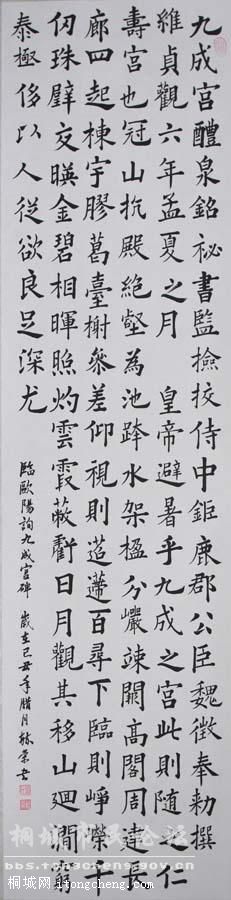 九成宮醴泉銘祕書監撿挍侍中鉅鹿郡公臣魏徵奉勅撰
維貞觀六年孟夏之月 皇帝避暑乎九成之宮此則隨之仁
壽宮也冠山抗殿絕壑為池跨水架楹分巖竦闕高閣周建長
廊四起棟宇膠葛臺榭參差仰視則迢遰百尋下臨則崢嶸千
仞珠璧交暎金碧相暉照灼雲霞蔽虧日月觀其移山迴澗窮
泰極侈以人從欲良足深尤
臨歐陽詢九成宮碑 歲在己丑年臘月
桐城网 itongcheng.com